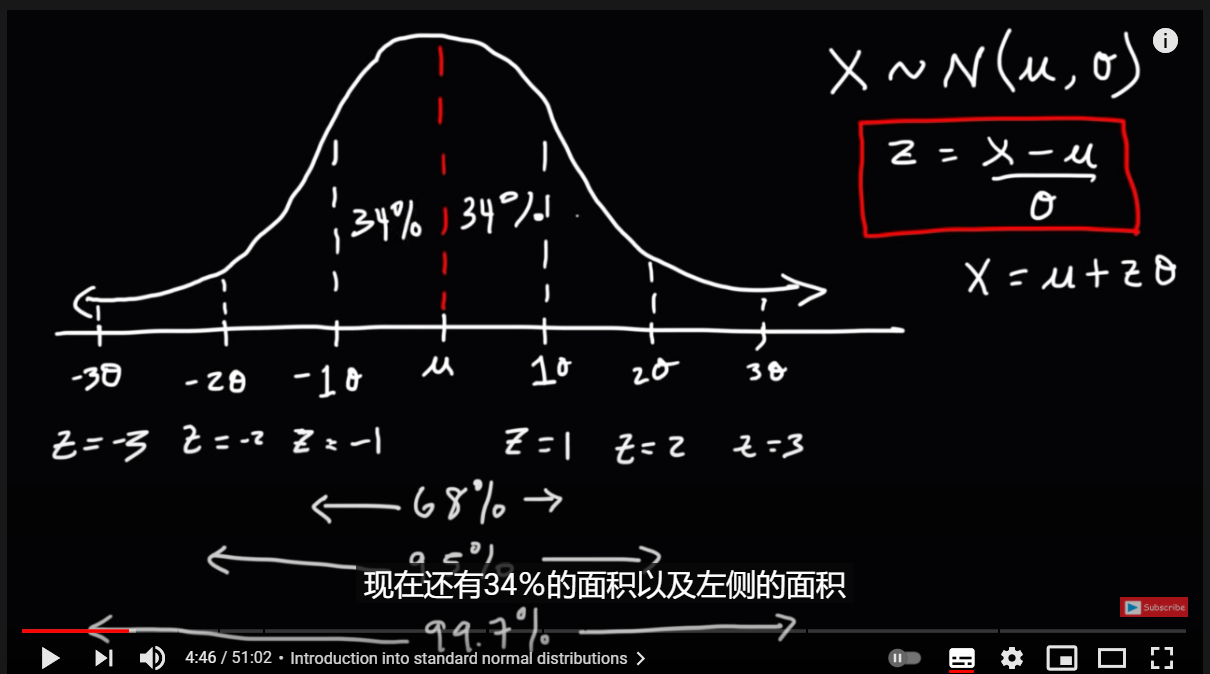 X ~ N(μ, σ)
z = x - μ / σ
X = μ + zσ
34% 34%
-3σ -2σ -1σ μ 1σ 2σ 3σ
z = -3 z = -2 z = -1 z = 1 z = 2 z = 3
68%
95%
现在还有34%的面积以及左侧的面积
Subscribe
99.7%
4:46 / 51:02 • Introduction into standard normal distributions